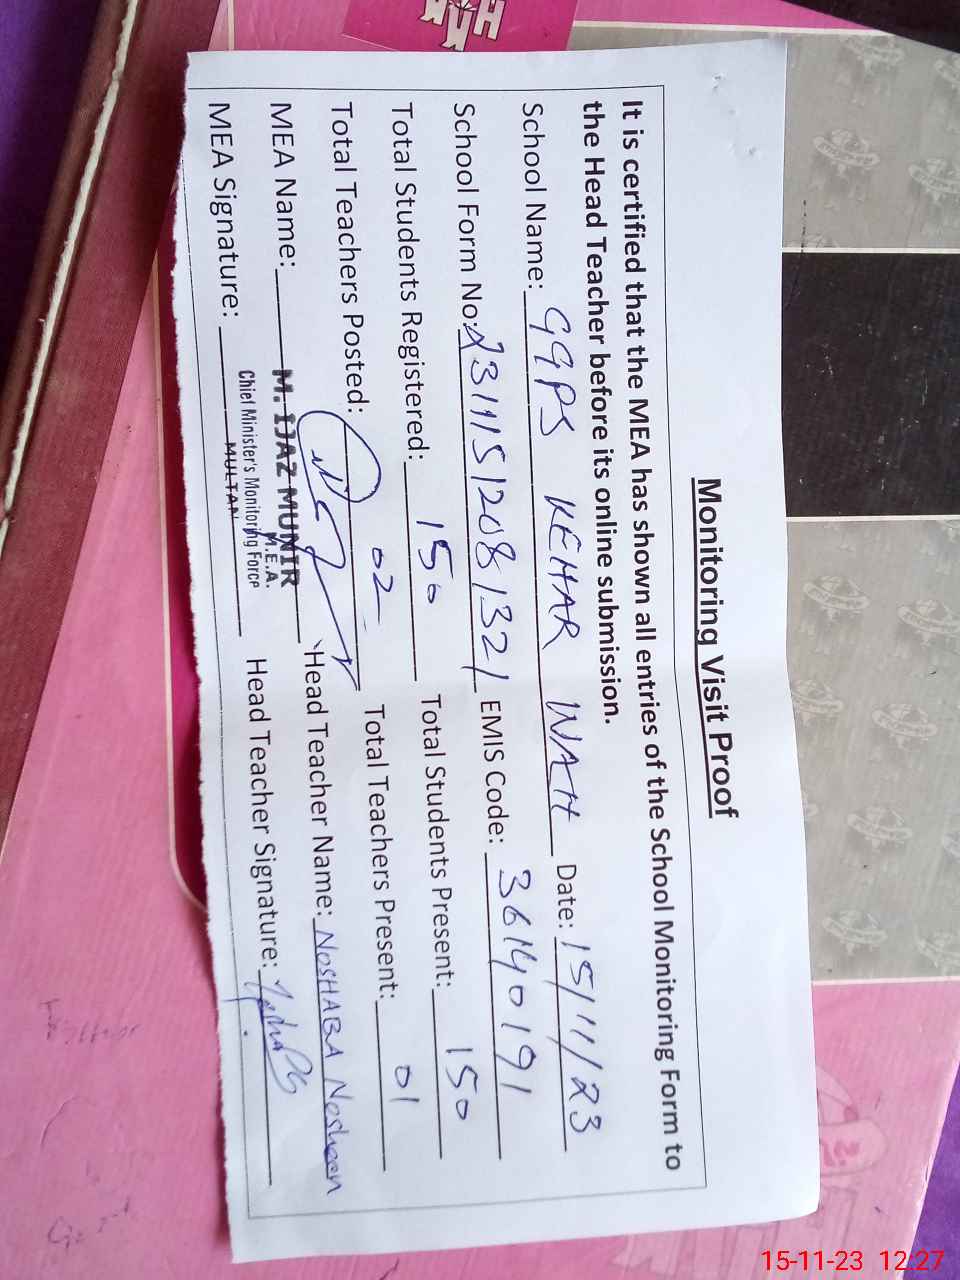 Monitoring Visit Proof
It is certified that the MEA has shown all entries of the School Monitoring Form to
the Head Teacher before its online submission.
School Name: GGPS KEHAR WAH Date: 15/11/23
School Form No: 23111512081321 EMIS Code: 36140191
Total Students Registered: 150 Total Students Present: 150
Total Teachers Posted: 02 Total Teachers Present: 01
MEA Name: M. IJAZ MUNIR Head Teacher Name: NOSHABA Nosheen
M.E.A.
MEA Signature: Chief Minister's Monitoring Force Head Teacher Signature:
MULTAN
15-11-23 12:27